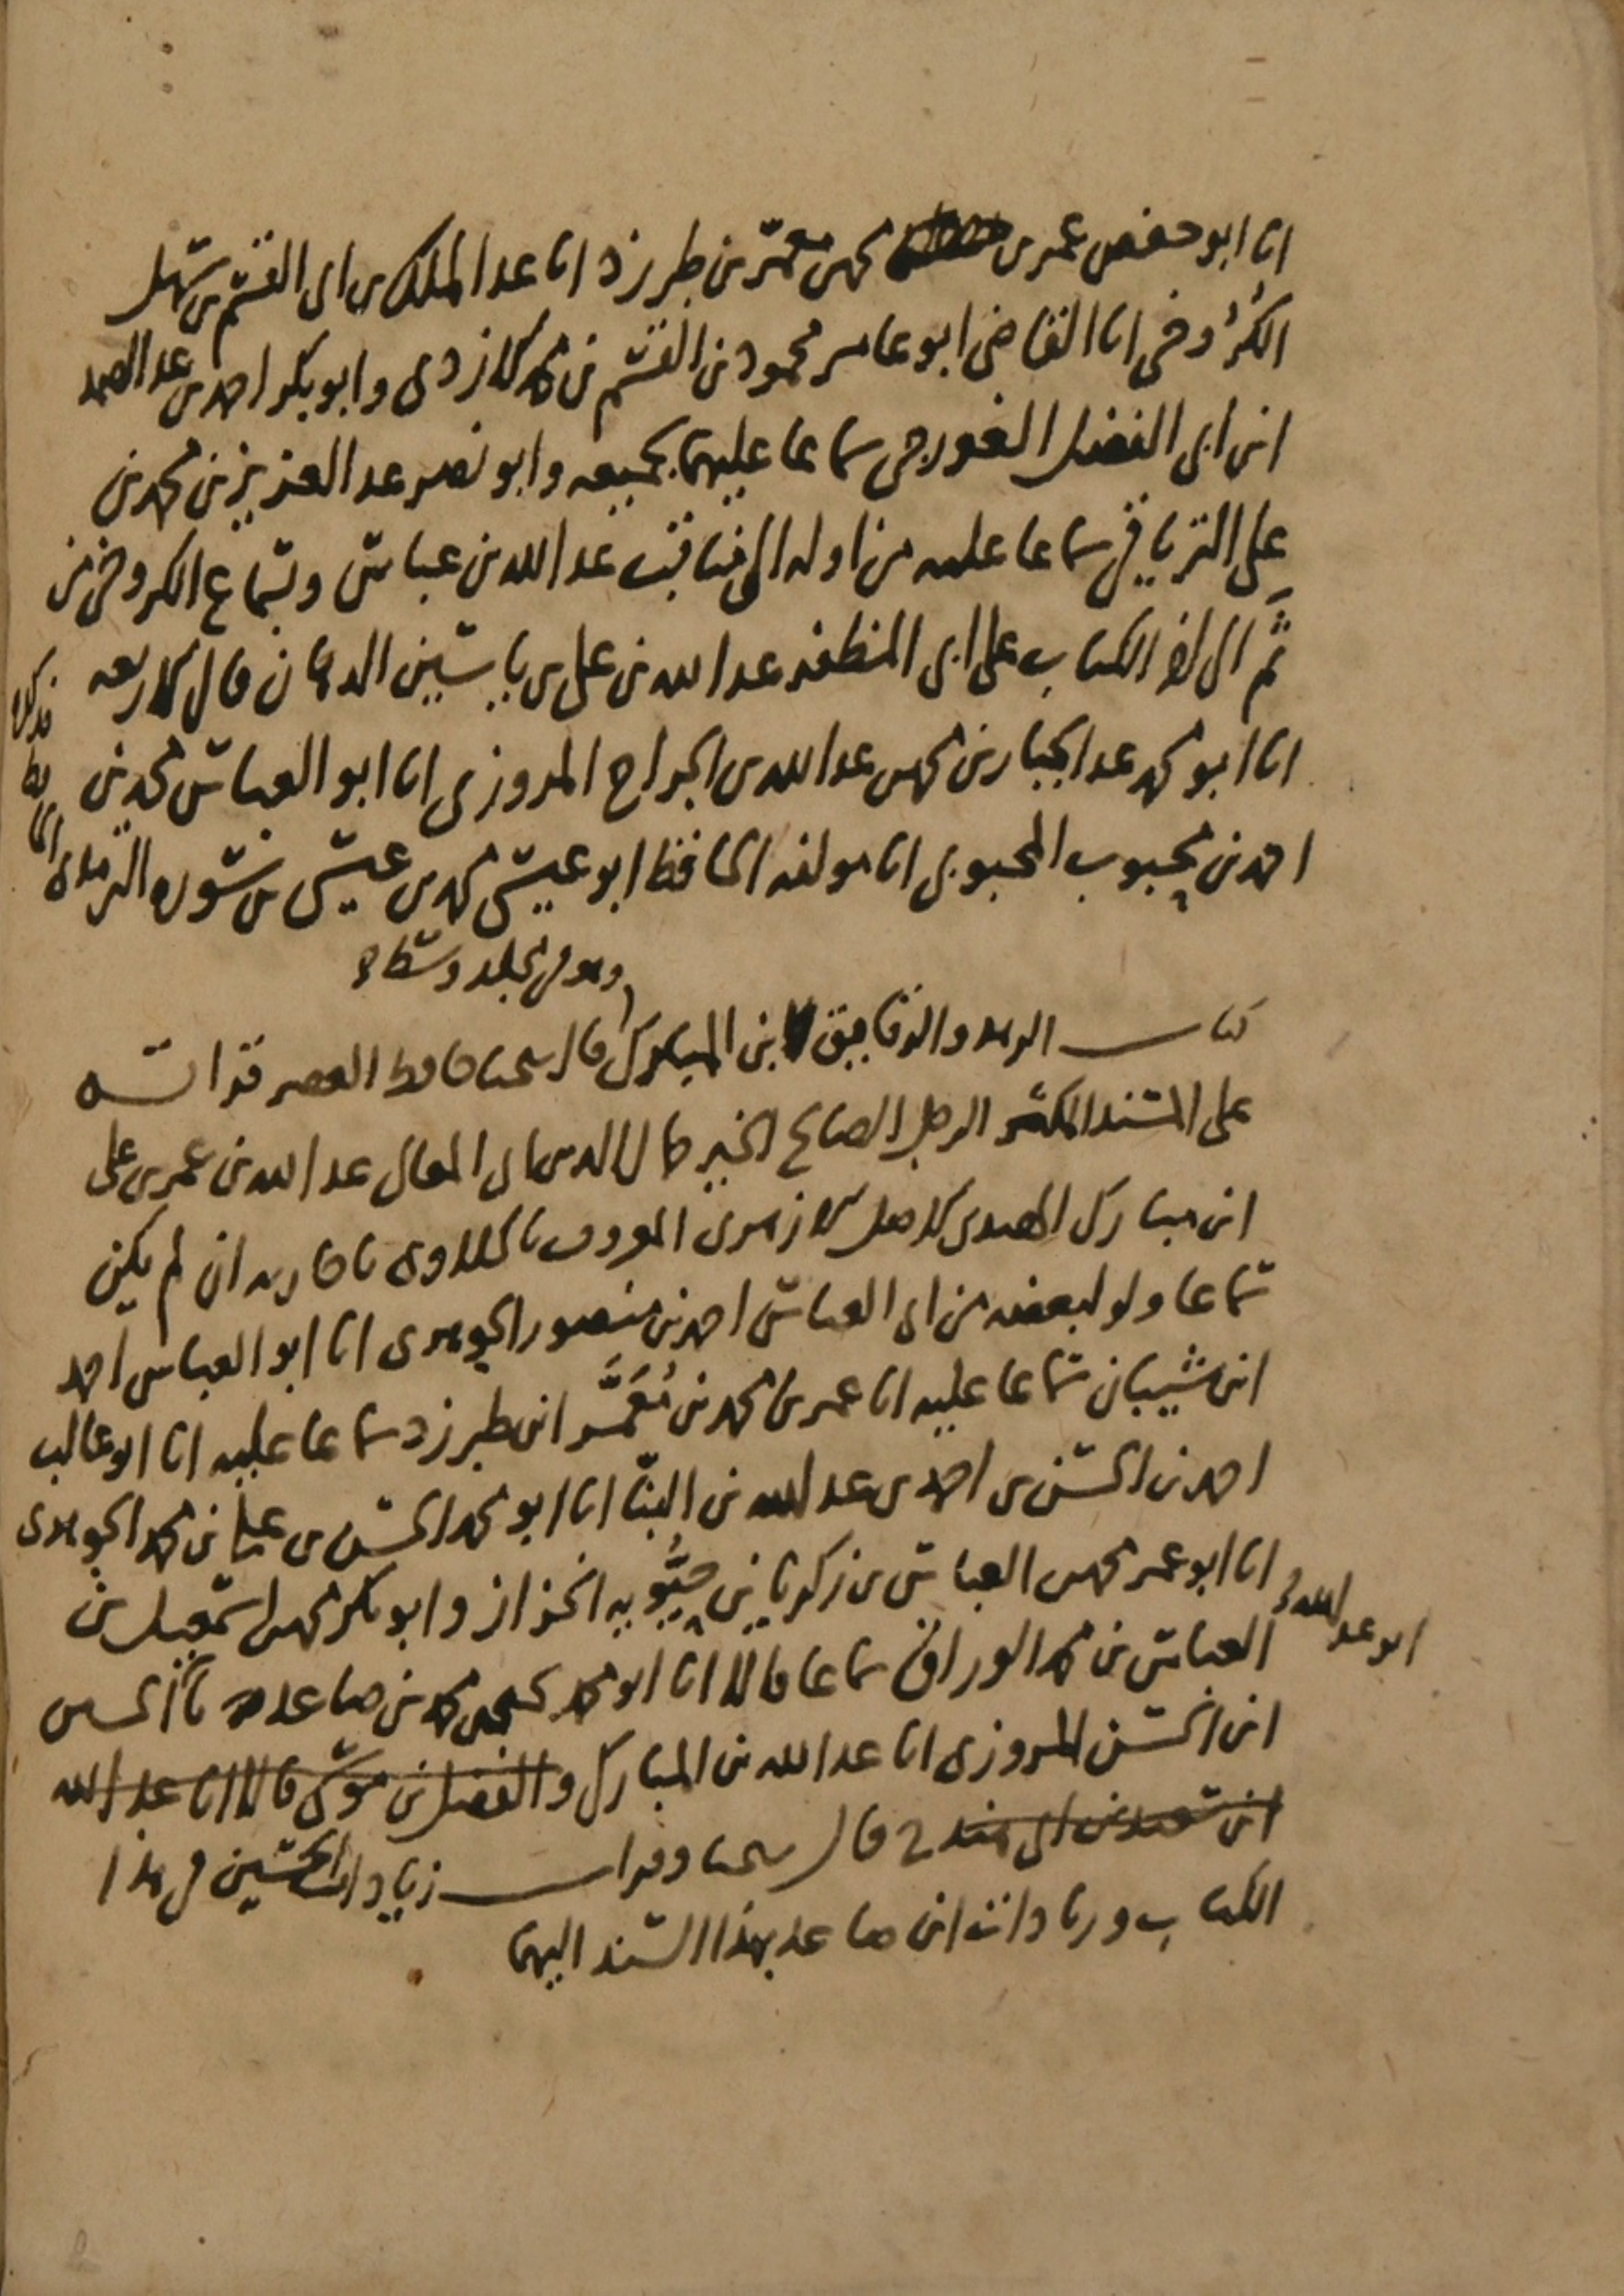 انا ابو حفص عمر بن محمد بن معمر بن طبرزد انا عبد الملك بن ابى القسم بن سهل
الكَرُوخى انا القاضى ابو عامر محمود بن القسم بن محمد الازدى وابو بكر احمد بن عبد الصمد
ابن ابى الفضل الغورجى سماعا عليهما بجميعه وابو نصر عبد العزيز بن محمد بن
على الترياقى سماعا عليه من اوله الى مناقب عبد الله بن عباس وبسماع الكروخى من
ثَمّ الى اخر الكتاب على ابى المظفر عبد الله بن على بن ياسين الدهان قال الاربعه
انا ابو محمد عبد الجبار بن محمد بن عبد الله بن الجراح المروزى انا ابو العباس محمد بن
احمد بن محبوب المحبوبى انا مولفه الحافظ ابو عيسى محمد بن عيسى بن سوره الترمذى
وهو فى مجلد وسط
كتاب الزهد والرقايق لابن المبارك قال شيخنا حافظ العصر قراته
على المسند المكثر الرجل الصالح الخير جمال الدين ابى المعالى عبد الله بن عمر بن على
ابن مبارك الهندى الاصل الازهرى المعروف بالحلاوى باجازته ان لم يكن
سماعا ولو لبعضه من ابى العباس احمد بن منصور الجوهرى انا ابو العباس احمد
ابن شيبان سماعا عليه انا عمر بن محمد بن مُعَمَّر ابن طبرزد سماعا عليه انا ابو غالب
احمد بن الحسن بن احمد بن عبد الله بن البنّا انا ابو محمد الحسن بن على بن محمد الجوهرى
انا ابو عمر محمد بن العباس بن زكريا بن حيُّويه الخزاز وابو بكر محمد بن اسمعيل بن
العباس بن محمد الوراق سماعا قالا انا ابو محمد يحيى بن محمد بن صاعد نا الحسين
ابو عبد الله
ابن الحسن المروزى انا عبد الله بن المبارك والفضل بن موسى قالا انا عبد الله
ابن سعيد بن ابى هند ح قال شيخنا وقرات زيادات الحسين فى هذا
الكتاب وزيادات ابن صاعد بهذا السند اليهما